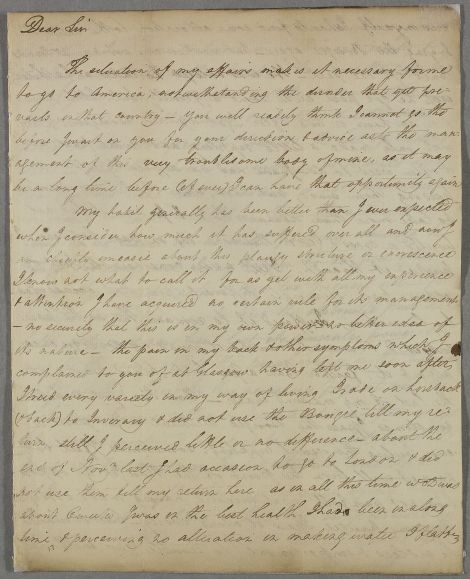 Dear Sir
The situation of my affairs makes it necessary for me
to go to America, notwithstanding the disorder that yet pre-
vails in that country – You will easily think I cannot go
before I wait on you for your direction & advice as to the man-
agement of this very troublesome body of mine, as it may
be a long time before (if ever) I can have that opportunity again
My habit generally has been better than I ever expected
when I consider how much it has suffered over all and now I
am chiefly uneasie about this plaguy stricture or
I know not what to call it for as yet with all my experience
& attention I have acquired no certain rule for its management
– no security that this is in my own power – no better idea of
its nature – the pain in my back & other symptoms which I
complained to you of at Glasgow having left me soon after
I tried every variety in my way of living I rode on horseback
(& back) to Inverary & did not use the Bougie till my re-
turn still I perceived little or no difference – about the
end of Novr last I had occasion to go to London & did
not use them till my return here as in all this time wch was
about I was in the best health I had been in a long
time & perceiving no alteration in making water I